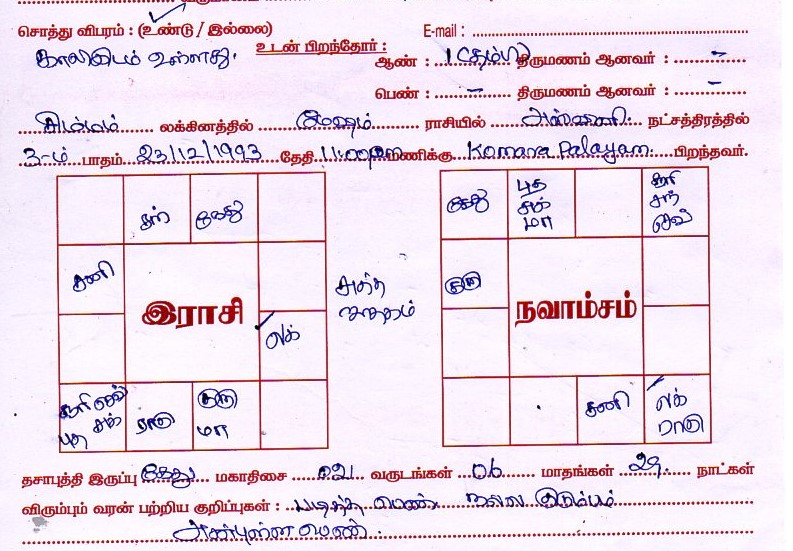 சொத்து விபரம் : (உண்டு / இல்லை) E-mail :
காலியிடம் உள்ளது. உடன் பிறந்தோர் : ஆண் : 1 (தம்பி) திருமணம் ஆனவர் : –
பெண் : – திருமணம் ஆனவர் : –
சிம்மம் லக்கினத்தில் மேஷம் ராசியில் அஸ்வினி நட்சத்திரத்தில்
3-ம் பாதம். 23/12/1993 தேதி 11:00 மணிக்கு Komara Palayam பிறந்தவர்.
சந் கேது
சனி
இராசி
லக்
சூரி செவ்
புத சுக்
ராகு
குரு
மா
சுத்த
ஜாதகம்
கேது
புத
சுக்
மா
சூரி
சந்
செவ்
குரு
நவாம்சம்
சனி
லக்
ராகு
தசாபுத்தி இருப்பு கேது மகாதிசை 02 வருடங்கள் 06 மாதங்கள் 29 நாட்கள்
விரும்பும் வரன் பற்றிய குறிப்புகள் : படித்த பெண், நல்ல குடும்பம்
அன்புள்ள பெண்.